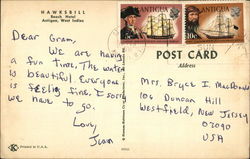 HAWKSBILL
Beach Hotel
Antigua, West Indies
ANTIGUA
ANTIGUA
POST CARD
Address
Dear Gram,
We are having
a fun time. The water
is beautiful. Everyone
is feeling fine. I
we have to go.
Love,
Jean
Mrs. Bryce I. MacDonald
106 Duncan Hill
Westfield, New Jersey
07090
USA